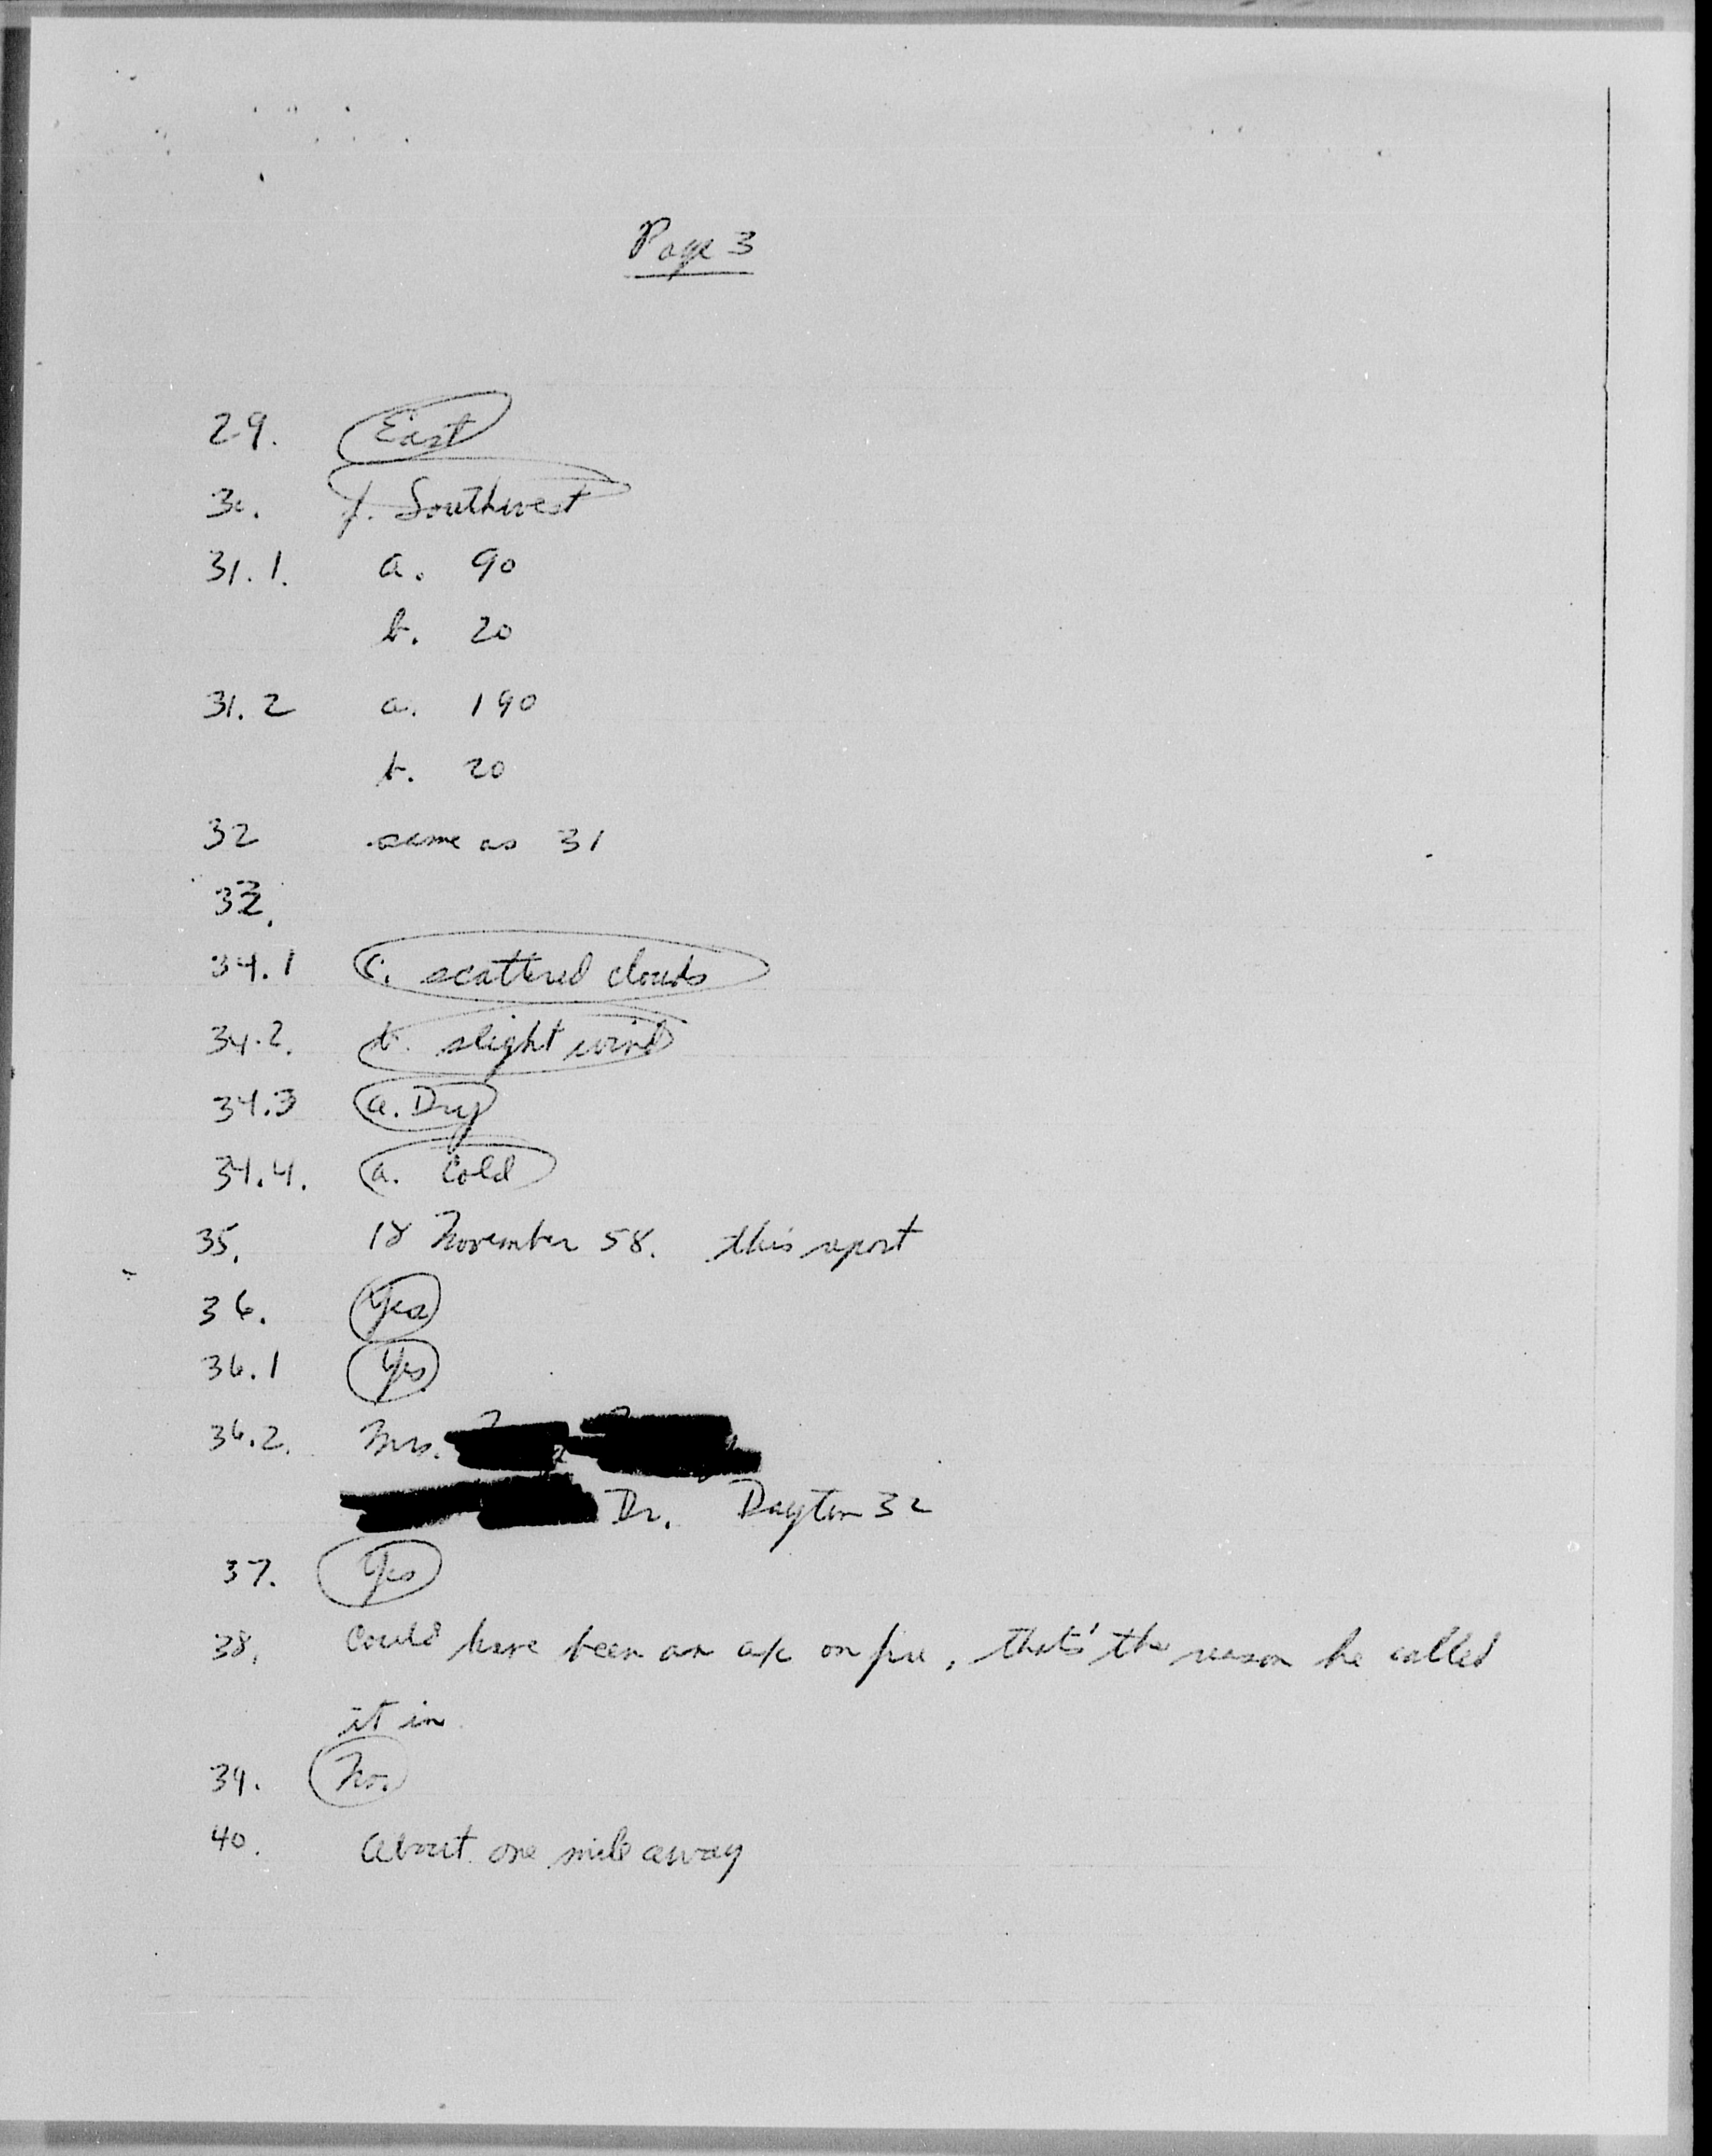 Page 3
29. East
30. f. Southwest
31.1. a. 90
b. 20
31.2 a. 190
b. 20
32 same as 31
33.
34.1 c. scattered clouds
34.2. b. slight wind
34.3 a. Dry
34.4. a. Cold
35. 18 November 58. this report
36. Yes
36.1 Yes
36.2. Mrs.
Dr. Dayton 32
37. Yes
38. Could have been an a/c on fire, thats' the reason he called
it in
39. No.
40. About one mile away